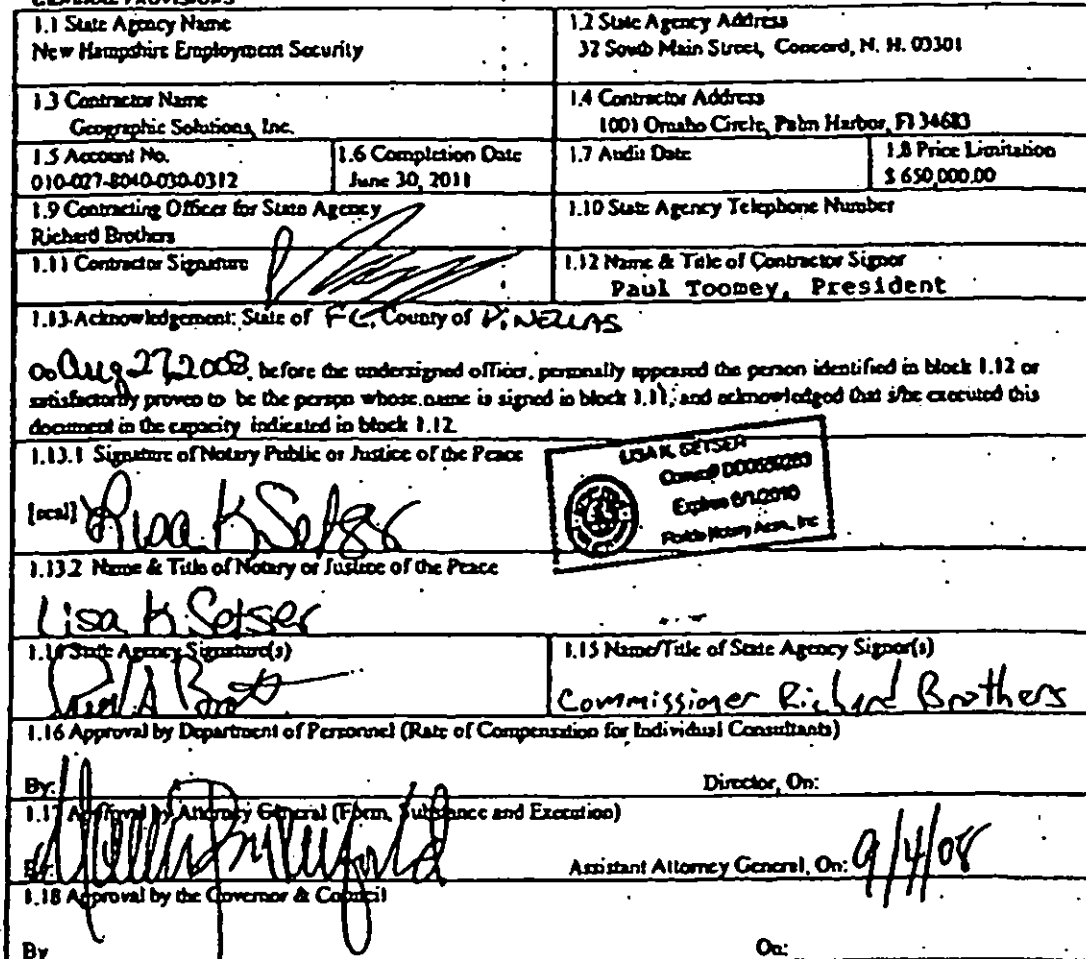 GENERAL PROVISIONS
1.1 State Agency Name
New Hampshire Employment Security
1.2 State Agency Address
32 South Main Street, Concord, N. H. 03301
1.3 Contractor Name
Geographic Solutions, Inc.
1.4 Contractor Address
1001 Omaho Circle, Palm Harbor, Fl 34683
1.5 Account No.
010-027-8040-030-0312
1.6 Completion Date
June 30, 2011
1.7 Audit Date
1.8 Price Limitation
$ 650,000.00
1.9 Contracting Officer for State Agency
Richard Brothers
1.10 State Agency Telephone Number
1.11 Contractor Signature
1.12 Name & Title of Contractor Signor
Paul Toomey, President
1.13 Acknowledgement: State of FL, County of PINELLAS
on Aug 27, 2008, before the undersigned officer, personally appeared the person identified in block 1.12 or
satisfactorily proven to be the person whose name is signed in block 1.11, and acknowledged that s/he executed this
document in the capacity indicated in block 1.12.
1.13.1 Signature of Notary Public or Justice of the Peace
[seal] Lisa K Setser
LISA K. SETSER
Expires 6/1/2010
Florida Notary Assn., Inc
1.13.2 Name & Title of Notary or Justice of the Peace
Lisa K Setser
1.14 State Agency Signature(s)
1.15 Name/Title of State Agency Signor(s)
Commissioner Richard Brothers
1.16 Approval by Department of Personnel (Rate of Compensation for Individual Consultants)
By: Director, On:
1.17 Approval by Attorney General (Form, Substance and Execution)
By: Assistant Attorney General, On: 9/4/08
1.18 Approval by the Governor & Council
By On: